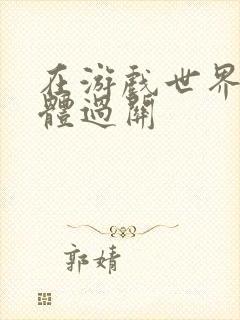 在游戏世界
體過關
郭婧